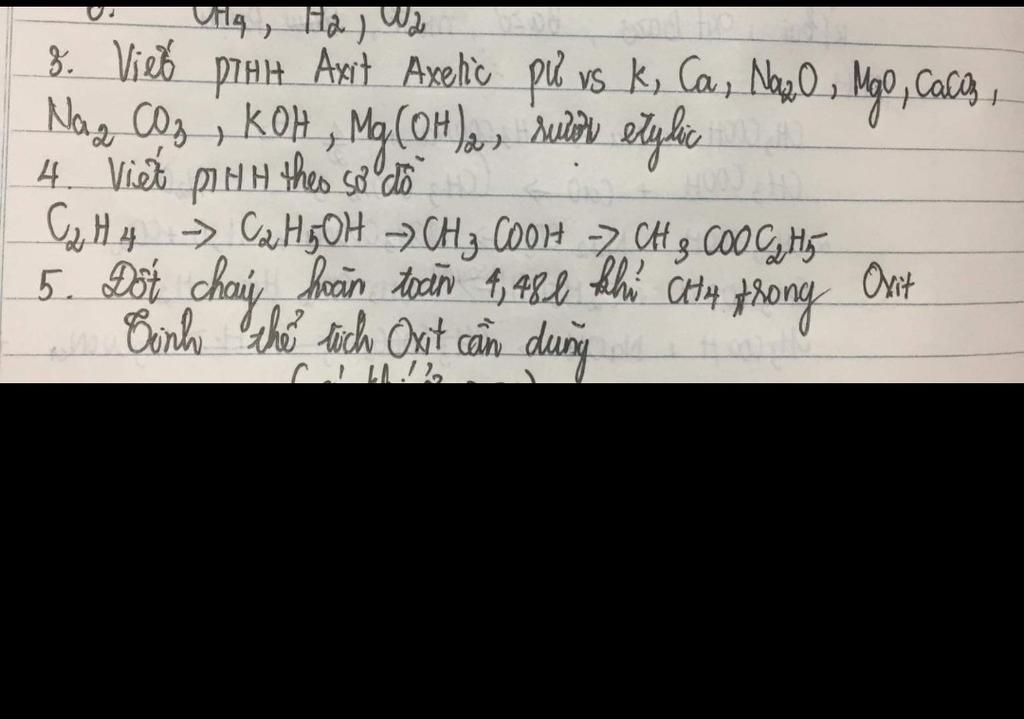 CH4, H2, CO2
3. Viết PTHH Axit Axetic pứ vs K, Ca, Na2O, MgO, CaCO3,
Na2CO3, KOH, Mg(OH)2, rượu etylic
4. Viết PTHH theo sơ đồ
C2H4 -> C2H5OH -> CH3COOH -> CH3COOC2H5
5. Đốt cháy hoàn toàn 4,48l khí CH4 trong Oxit
Tính thể tích Oxit cần dùng